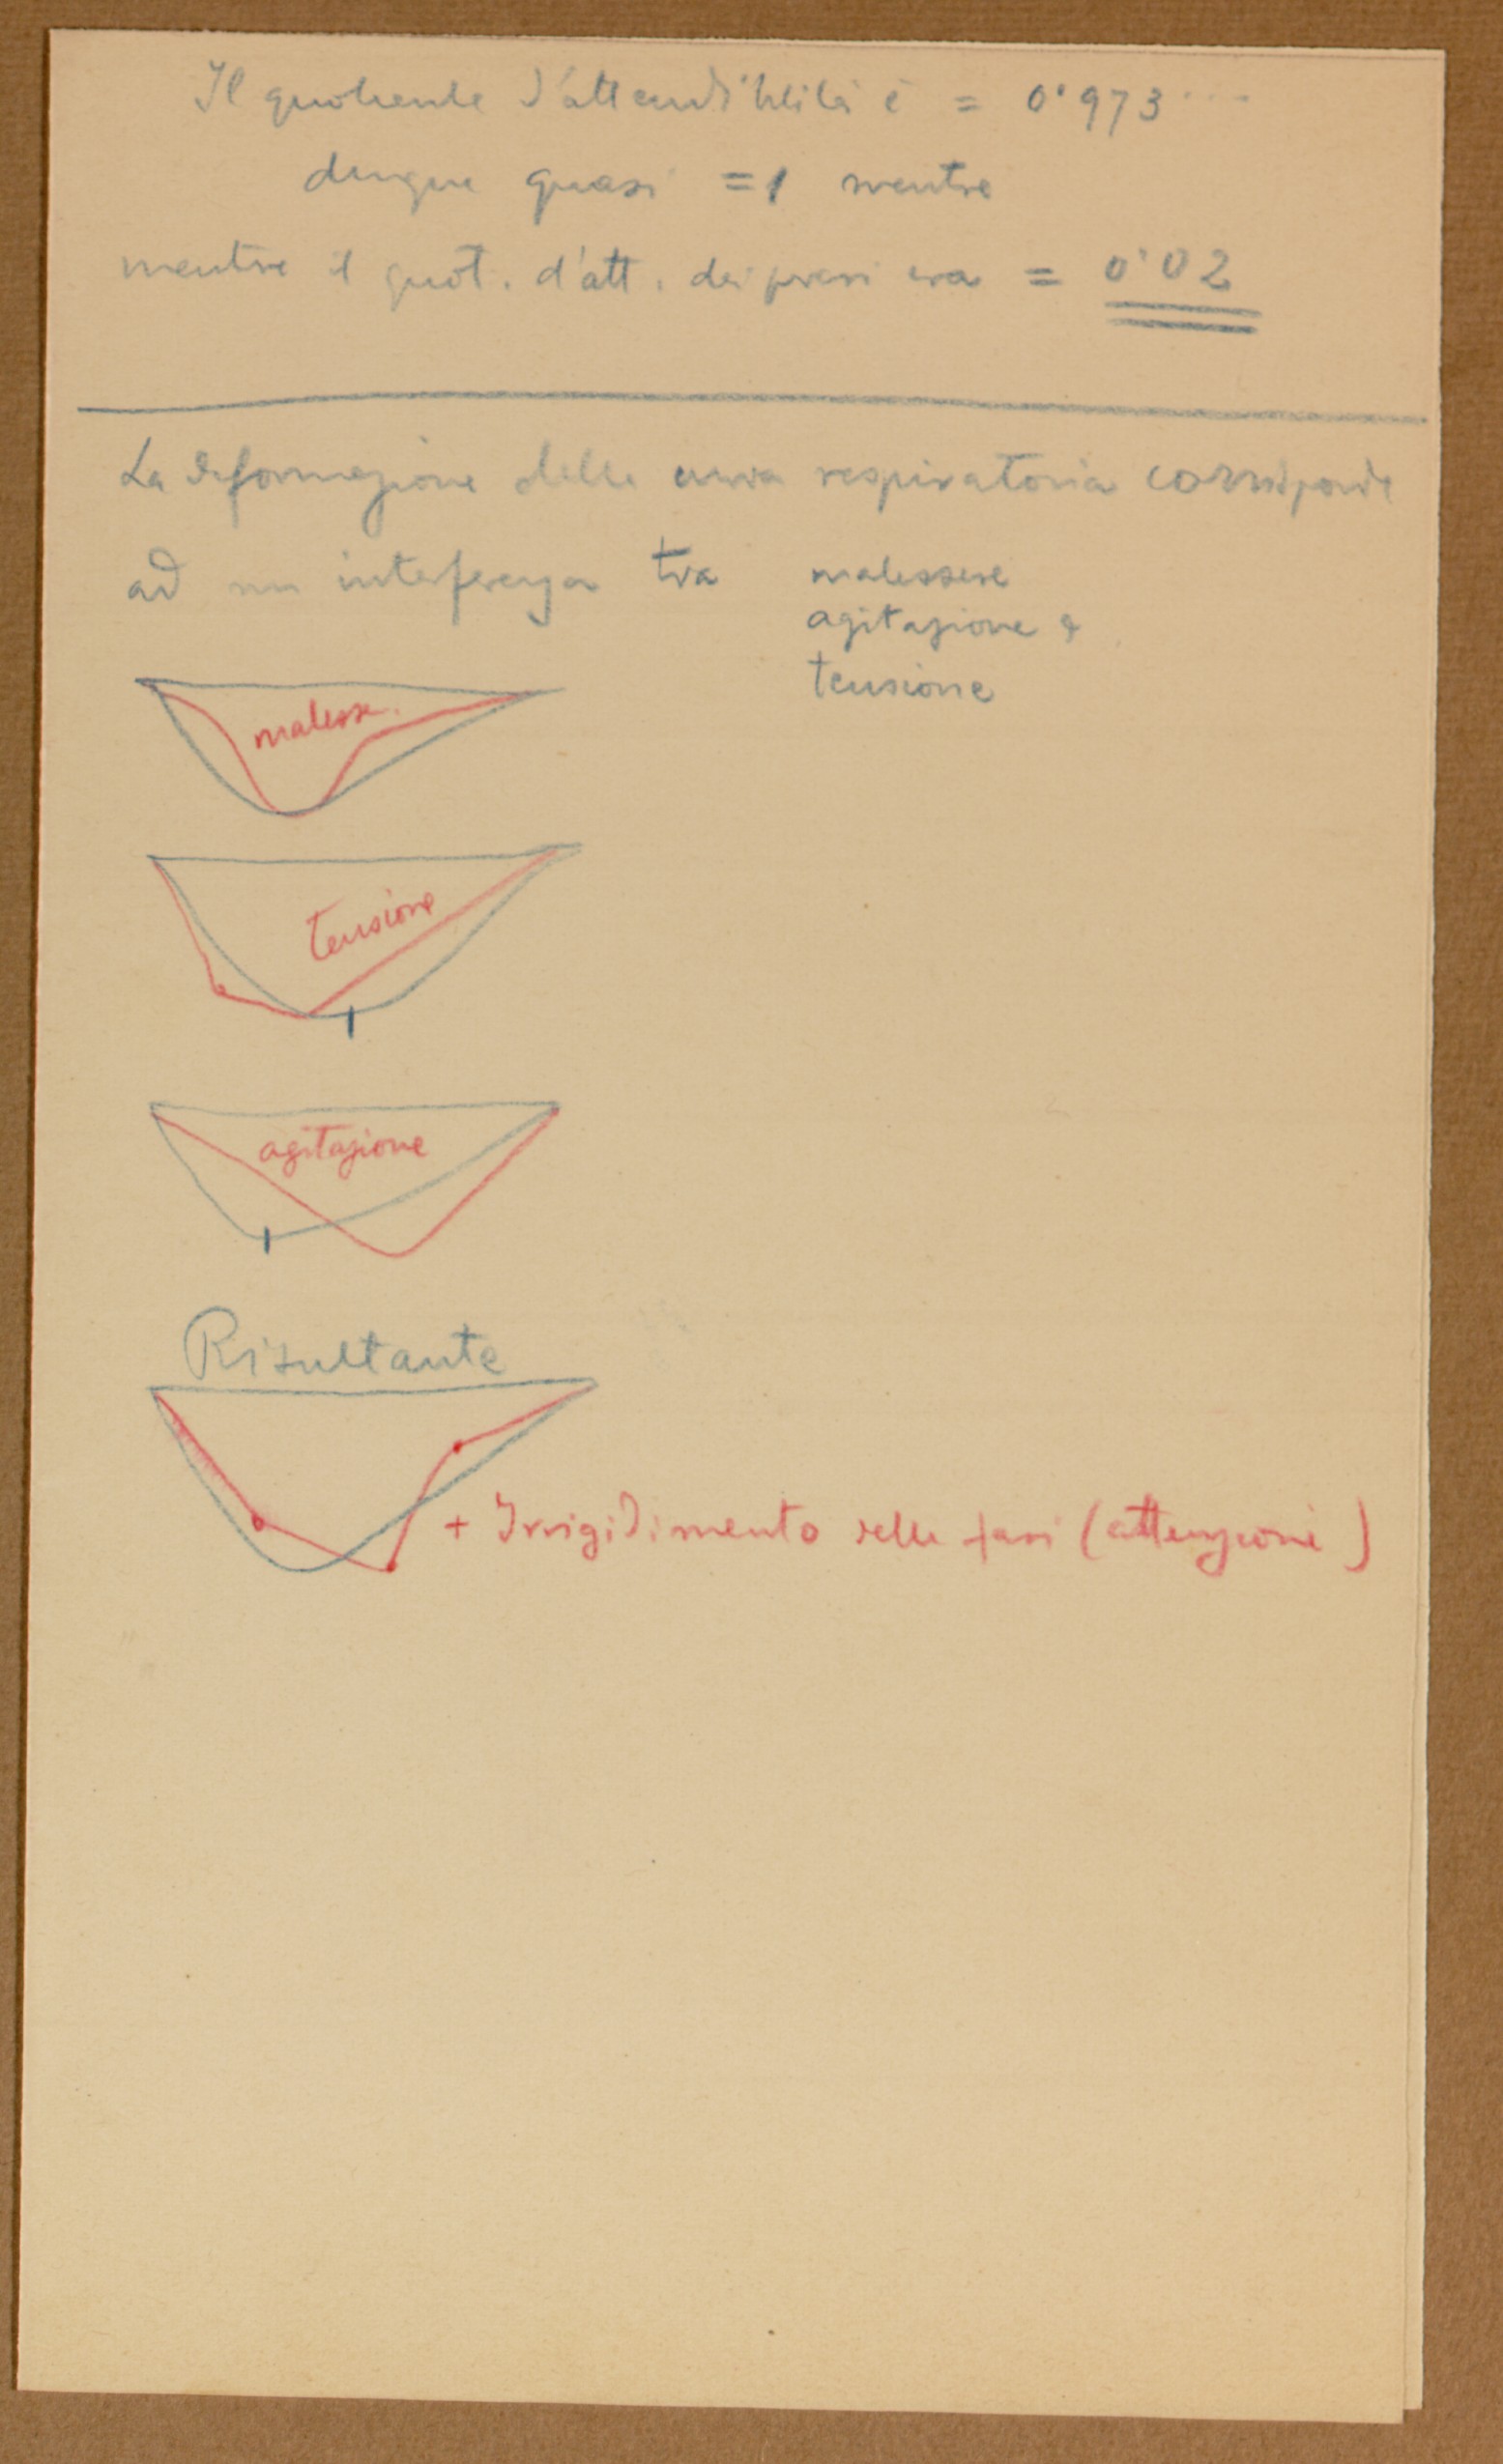 Il quoziente d'attendibilità è = 0'973...
dunque quasi = 1 mentre
mentre il quot. d'att. dei pesi era = 0'02
La deformazione della curva respiratoria corrisponde
ad un interferenza tra malessere
agitazione e
tensione
malesse.
tensione
agitazione
Risultante
+ Irrigidimento delle fasi (attenzione)